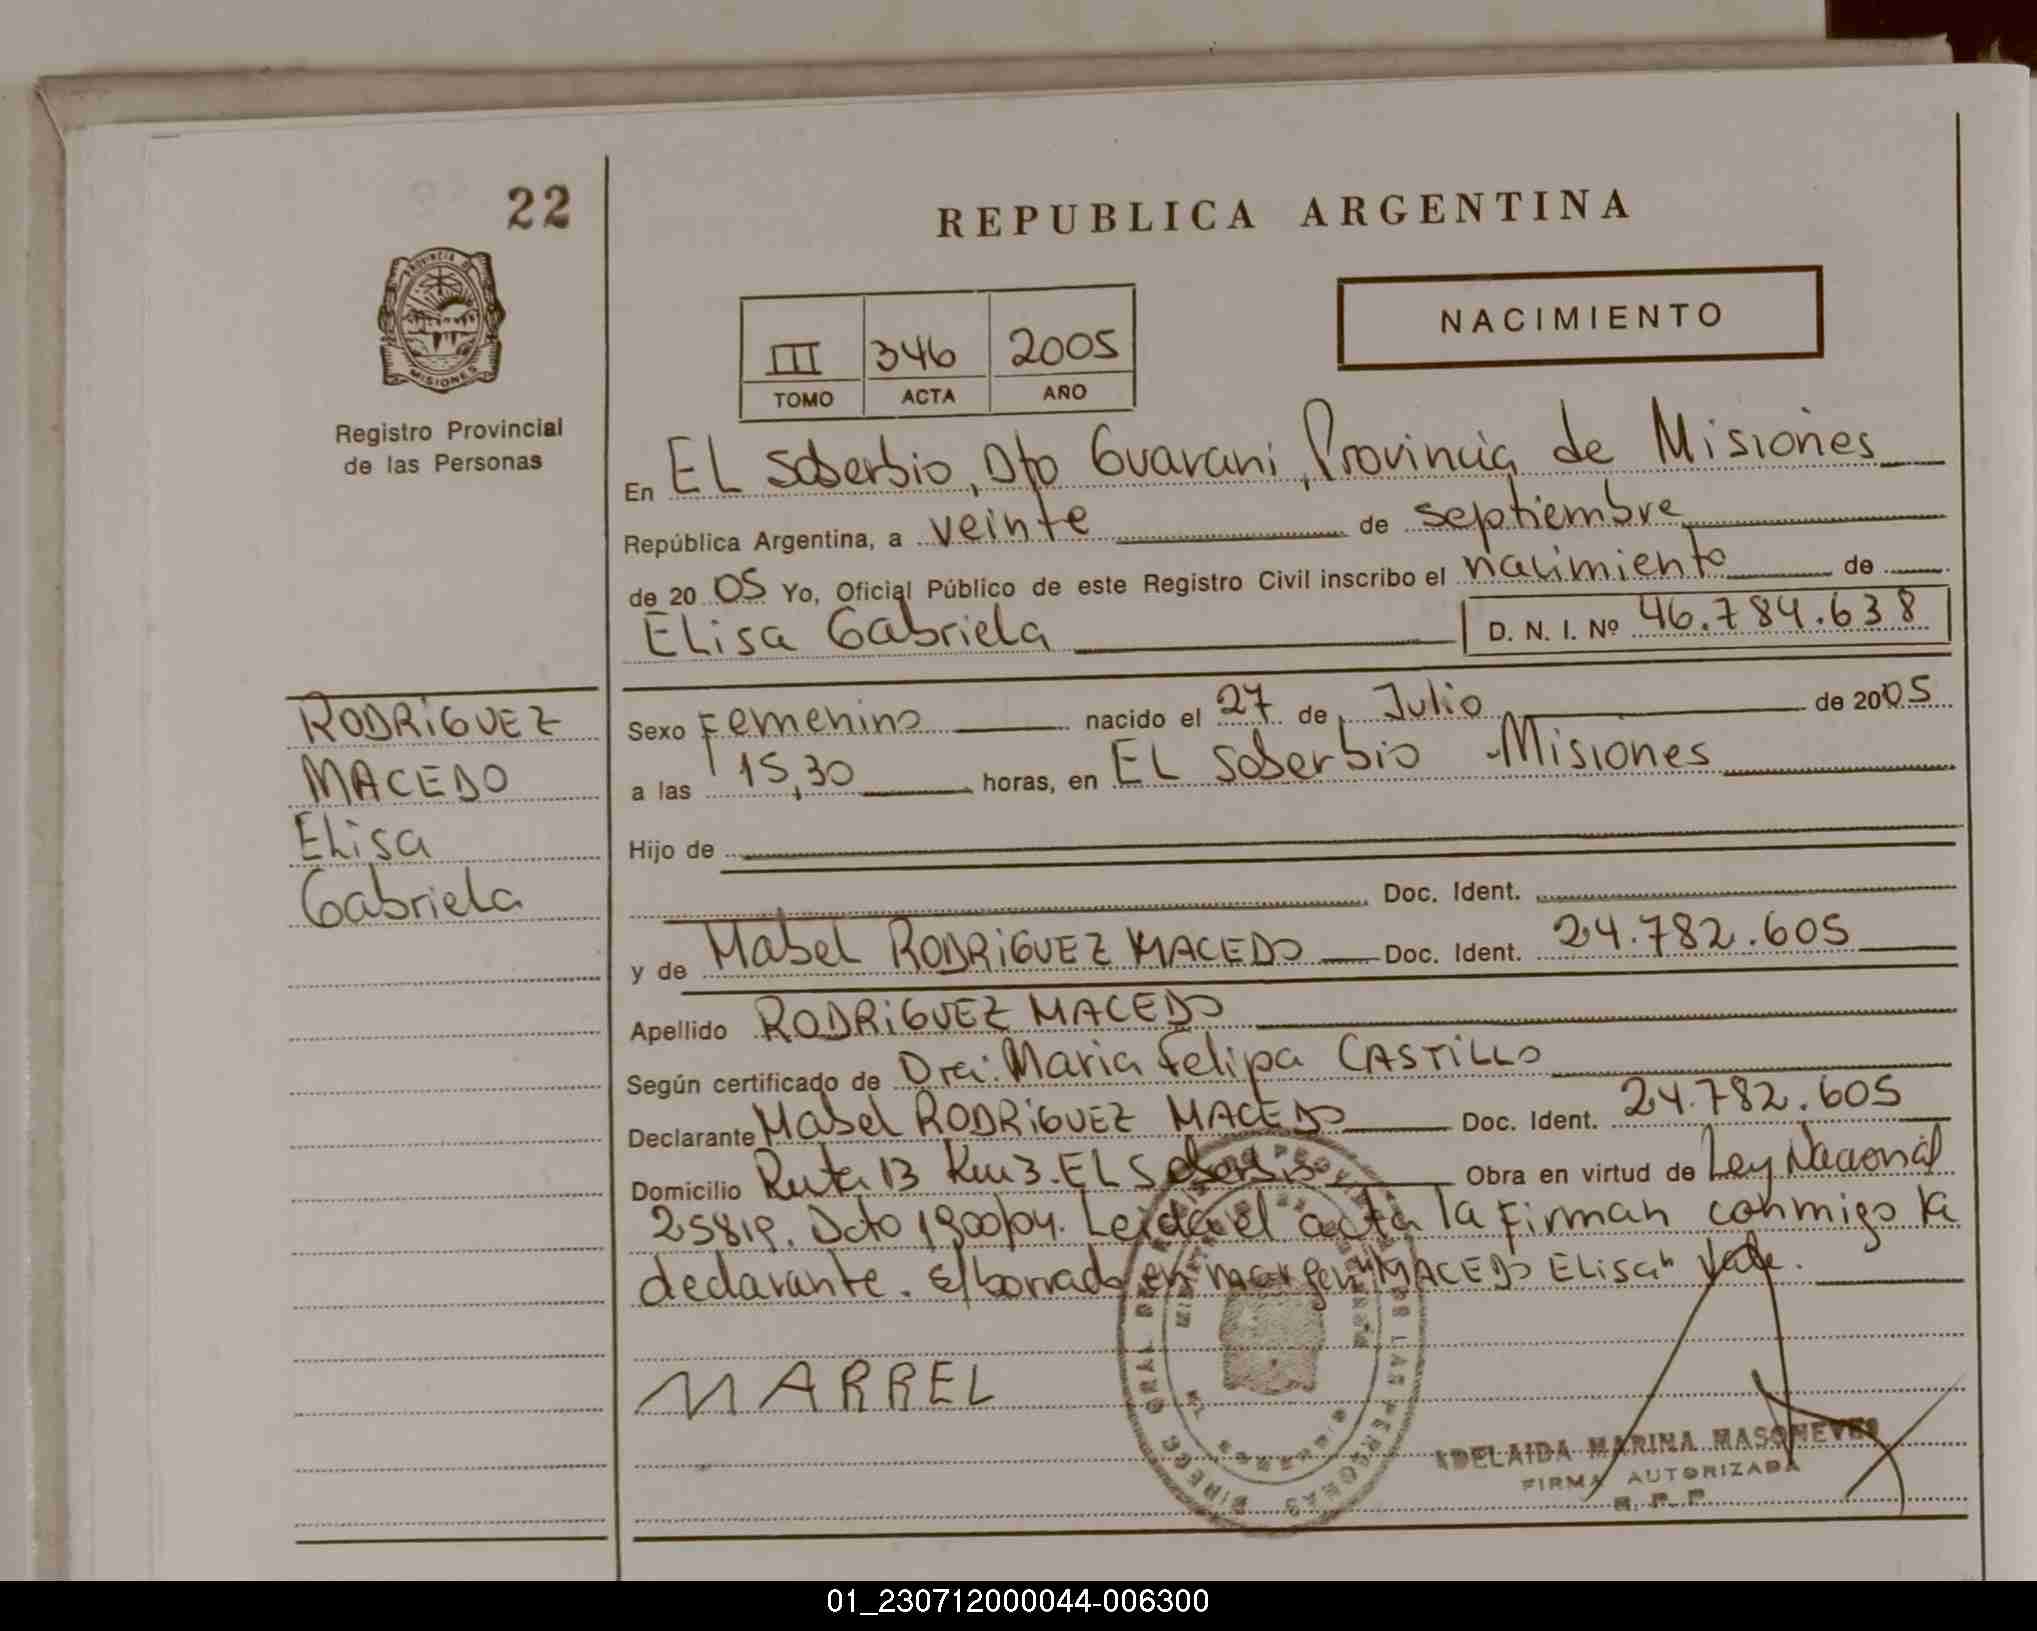 22
REPUBLICA ARGENTINA
NACIMIENTO
III 346 2005
TOMO ACTA AÑO
PROVINCIA DE
MISIONES
Registro Provincial
de las Personas
En EL Soberbio, Dto Guarani, Provincia de Misiones
República Argentina, a veinte de septiembre
de 2005 Yo, Oficial Público de este Registro Civil inscribo el nacimiento de
Elisa Gabriela D. N. I. Nº 46.784.638
RODRiGUEZ
MACEDO
Elisa
Gabriela
Sexo Femenino nacido el 27 de Julio de 2005
a las 15,30 horas, en EL Soberbio - Misiones
Hijo de
Doc. Ident.
y de Mabel RODRiGUEZ MACEDO Doc. Ident. 24.782.605
Apellido RODRiGUEZ MACEDO
Según certificado de Dra. Maria Felipa CASTiLLO
Declarante Mabel RODRiGUEZ MACEDO Doc. Ident. 24.782.605
Domicilio Ruta 13 Km 3. EL Soberbio Obra en virtud de Ley Nacional
25819. Dcto 1900/04. Leida el acta la firman conmigo la
declarante. E/borrado en margen "MACEDO Elisa" Vale.
MARREL
ADELAIDA MARINA MASONEVES
FIRMA AUTORIZADA
R. P. P.
01_230712000044-006300